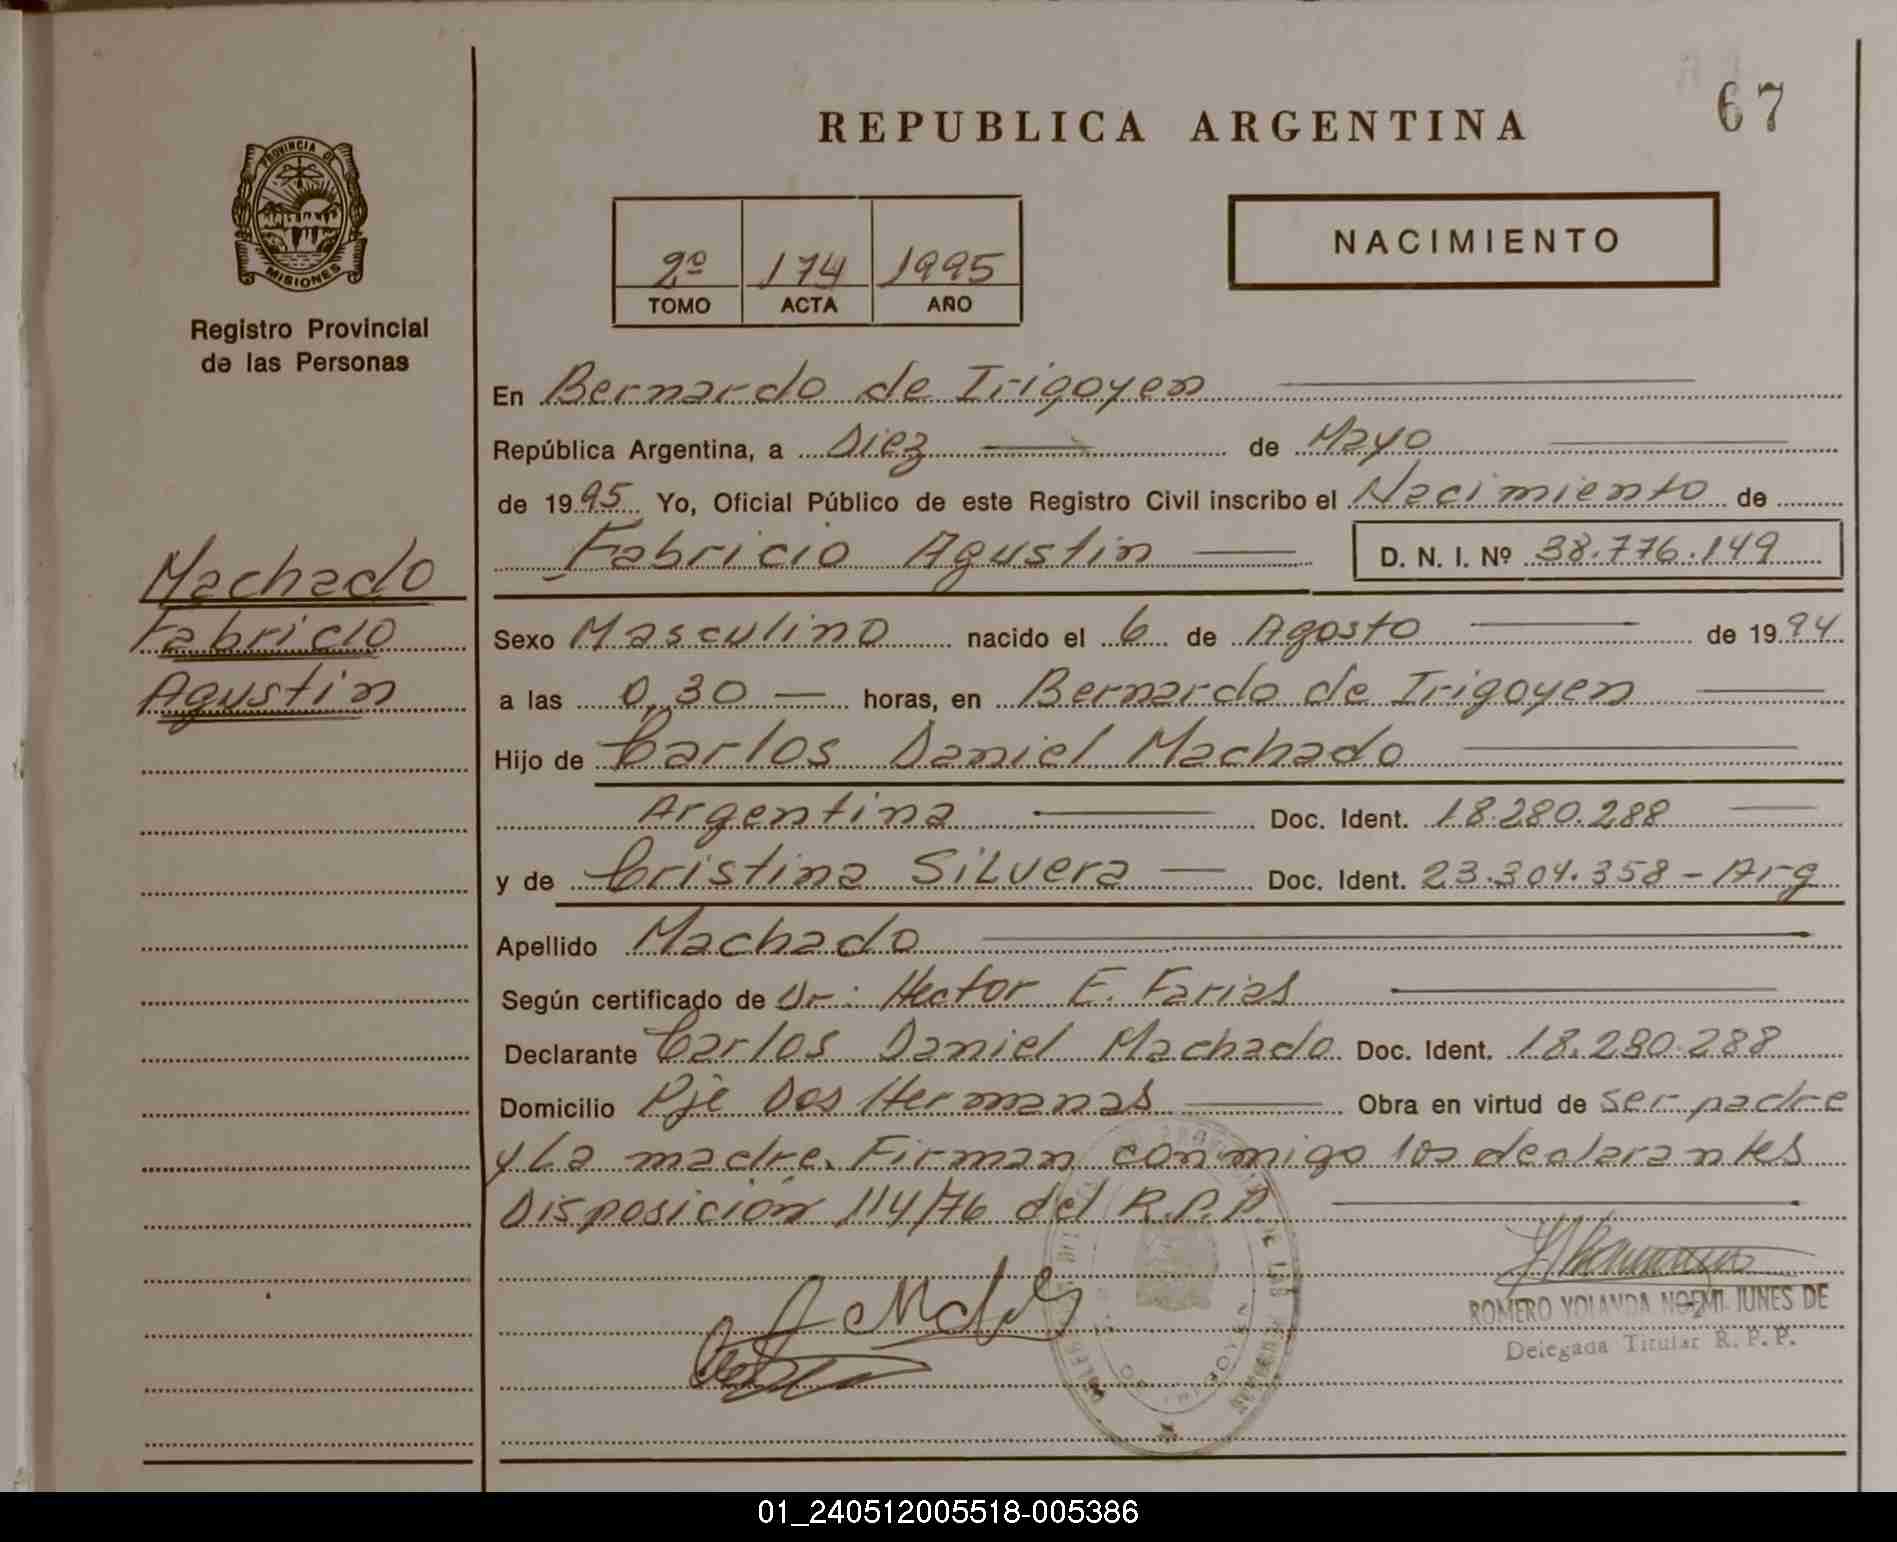 67
REPUBLICA ARGENTINA
PROVINCIA DE
MISIONES
Registro Provincial
de las Personas
2º 174 1995
TOMO ACTA AÑO
NACIMIENTO
En Bernardo de Irigoyen
República Argentina, a Diez de Mayo
de 1995 Yo, Oficial Público de este Registro Civil inscribo el Nacimiento de
Fabricio Agustin D. N. I. Nº 38.776.149
Machado
Fabricio
Agustin
Sexo Masculino nacido el 6 de Agosto de 1994
a las 0,30 horas, en Bernardo de Irigoyen
Hijo de Carlos Daniel Machado
Argentina Doc. Ident. 18.280.288
y de Cristina SiLvera Doc. Ident. 23.304.358 - Arg
Apellido Machado
Según certificado de Dr: Hector E. Farias
Declarante Carlos Daniel Machado Doc. Ident. 18.280.288
Domicilio Pje Dos Hermanas Obra en virtud de ser padre
y La madre. Firman conmigo los declarantes
Disposición 114/76 del R.P.P.
ROMERO YOLANDA NOEMI JUNES DE
Delegada Titular R. P. P.
01_240512005518-005386